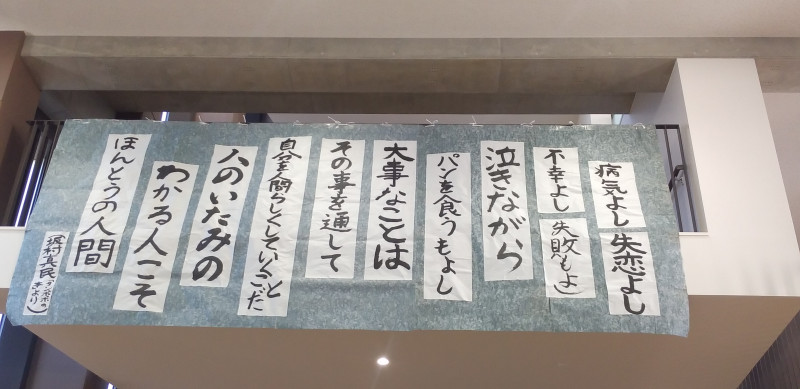 病気よし 失恋よし
不幸よし 失敗もよし
泣きながら
パンを食うもよし
大事なことは
その事を通して
自分を人間らしくしていくことだ
人のいたみの
わかる人こそ
ほんとうの人間
坂村真民